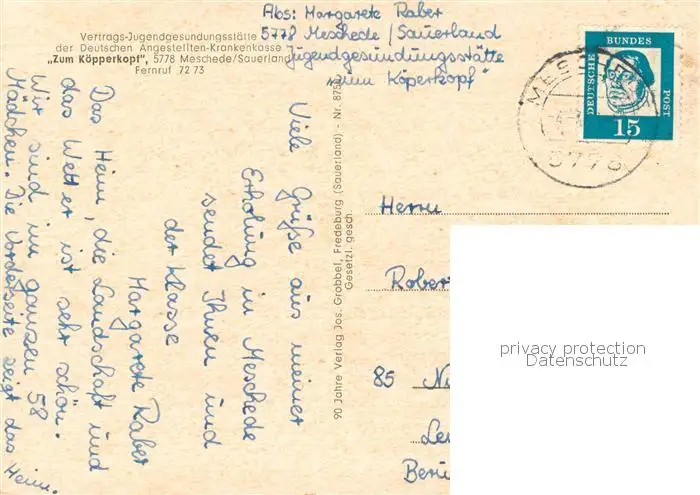 Vertrags-Jugendgesundungsstätte
der Deutschen Angestellten-Krankenkasse
„Zum Köpperkopf", 5778 Meschede/Sauerland
Fernruf 72 73
Abs: Margarete Raber
5778 Meschede/Sauerland
Jugendgesundungsstätte
„zum Köperkopf"
Viele Grüße aus meiner
Erholung in Meschede
sendet Ihnen und
der Klasse
Margarete Raber
Das Heim, die Landschaft und
das Wetter ist sehr schön.
Wir sind im ganzen 58
Mädchen. Die Vorderseite zeigt das Heim.
90 Jahre Verlag Jos. Grobbel, Fredeburg (Sauerland) - Nr. 875
Gesetzl. gesch.
DEUTSCHE BUNDES POST
15
MESCHEDE
5778
Herrn
Rober
85 Nü
Ber
privacy protection
Datenschutz